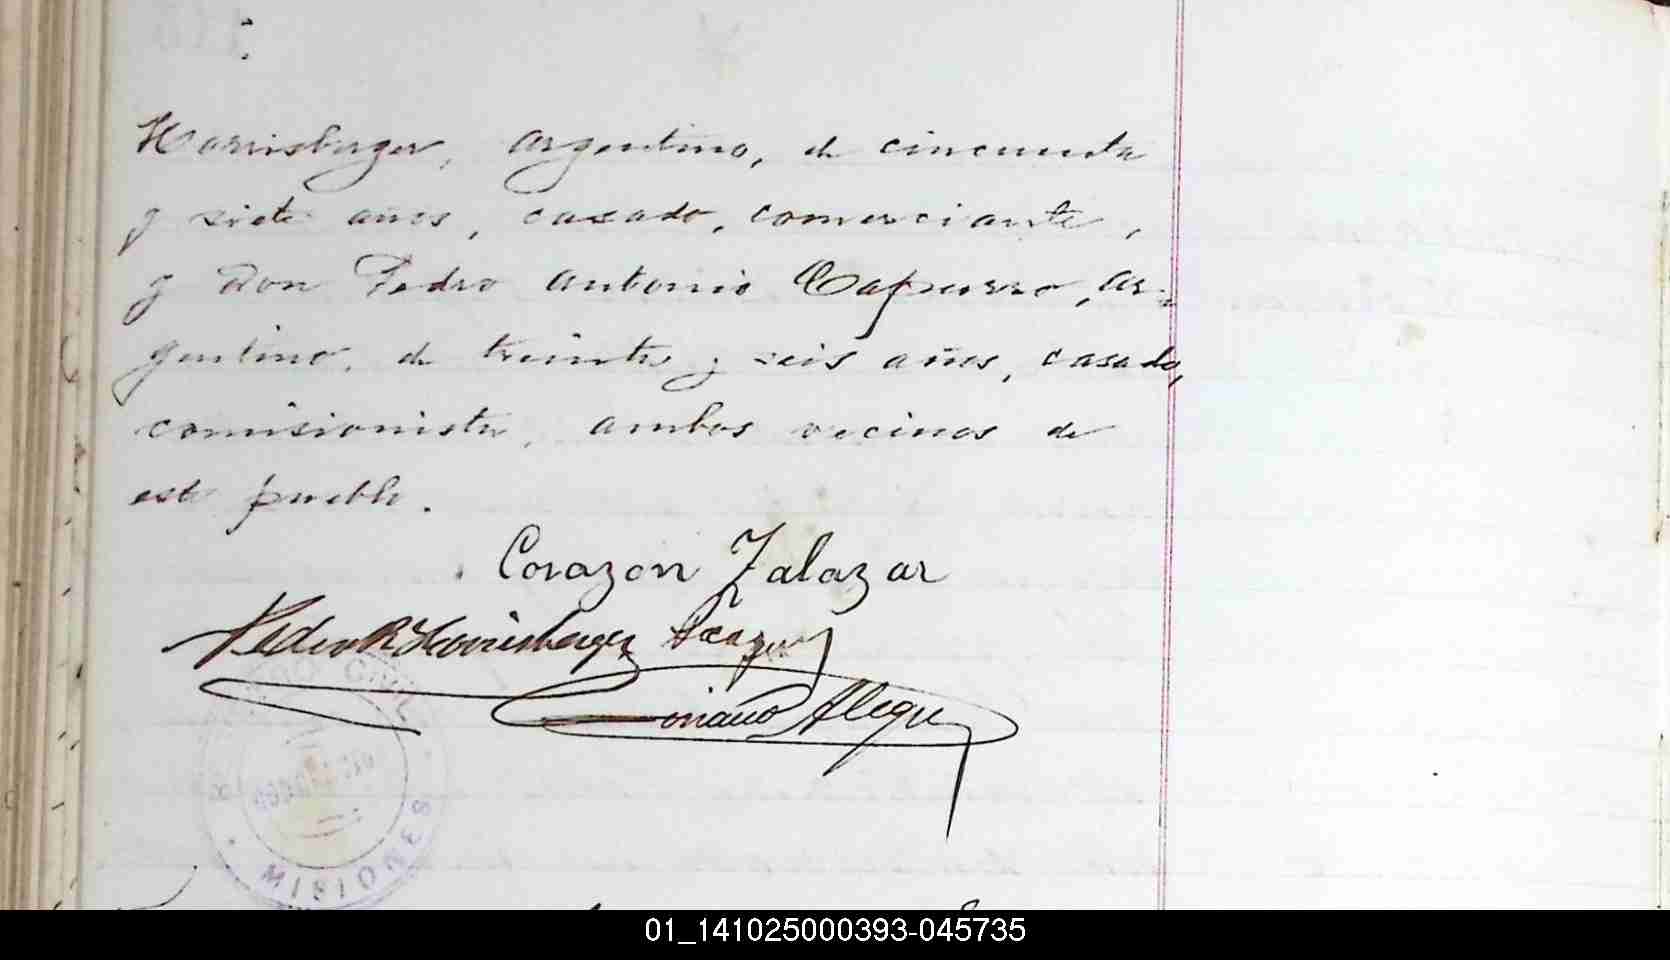 Harrisberger, argentino, de cincuenta
y siete años, casado, comerciante,
y Don Pedro Antonio Capurro, ar-
gentino, de treinta y seis años, casado,
comisionista, ambos vecinos de
este pueblo.
Corazon Zalazar
Pedro R Harrisberger
Soriano Alegre
CIVIL
MISIONES
01_141025000393-045735